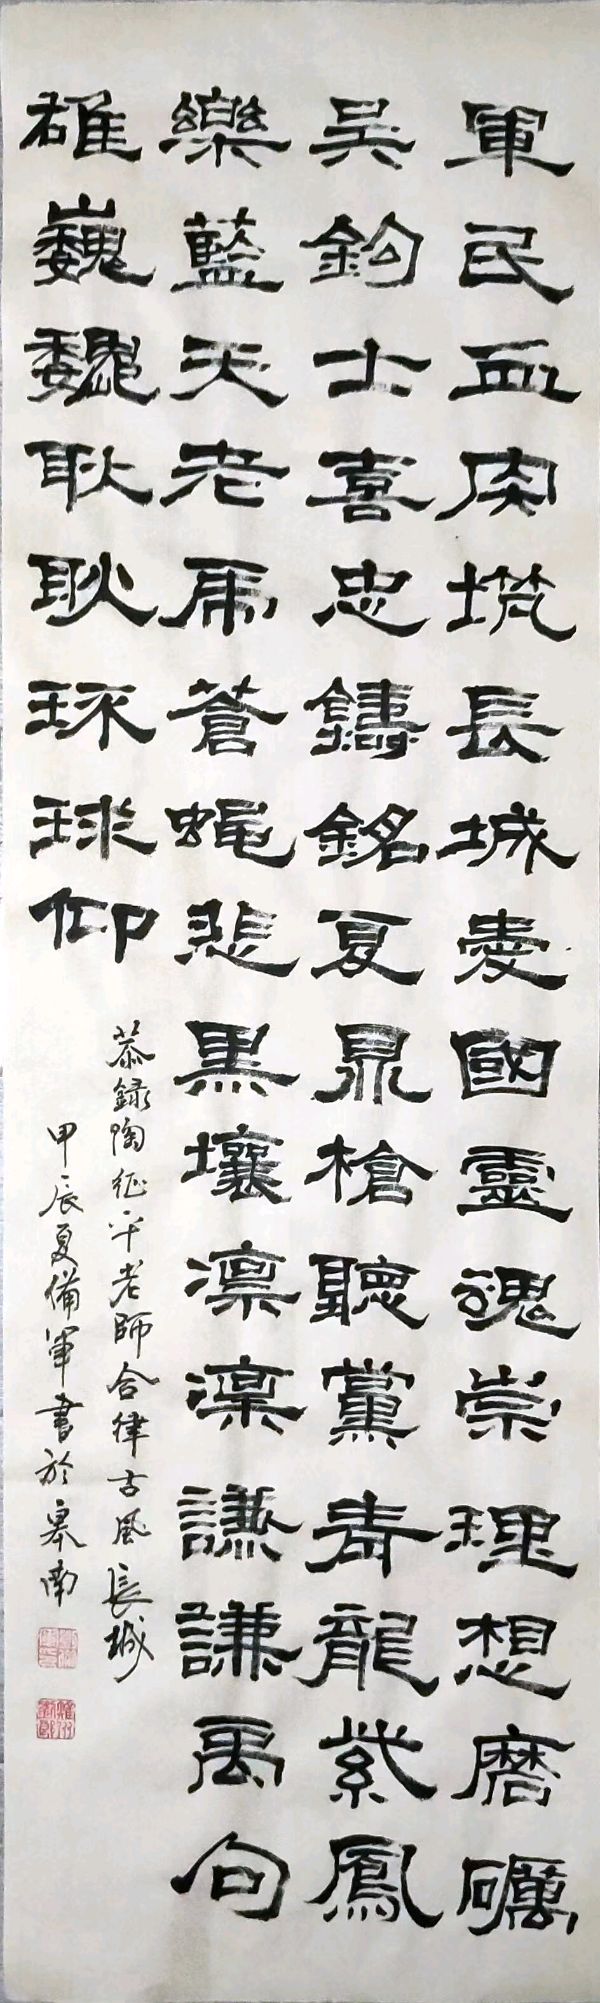 軍民血肉筑長城愛國靈魂崇理想磨礪
吴鉤士喜忠鑄銘夏鼎槍聽黨青龍紫鳳
樂藍天老虎蒼蝇悲黑壤凛凛謙謙禹句
雄巍巍耿耿环球仰
恭録陶征平老師合律古風長城
甲辰夏備軍書於皋南